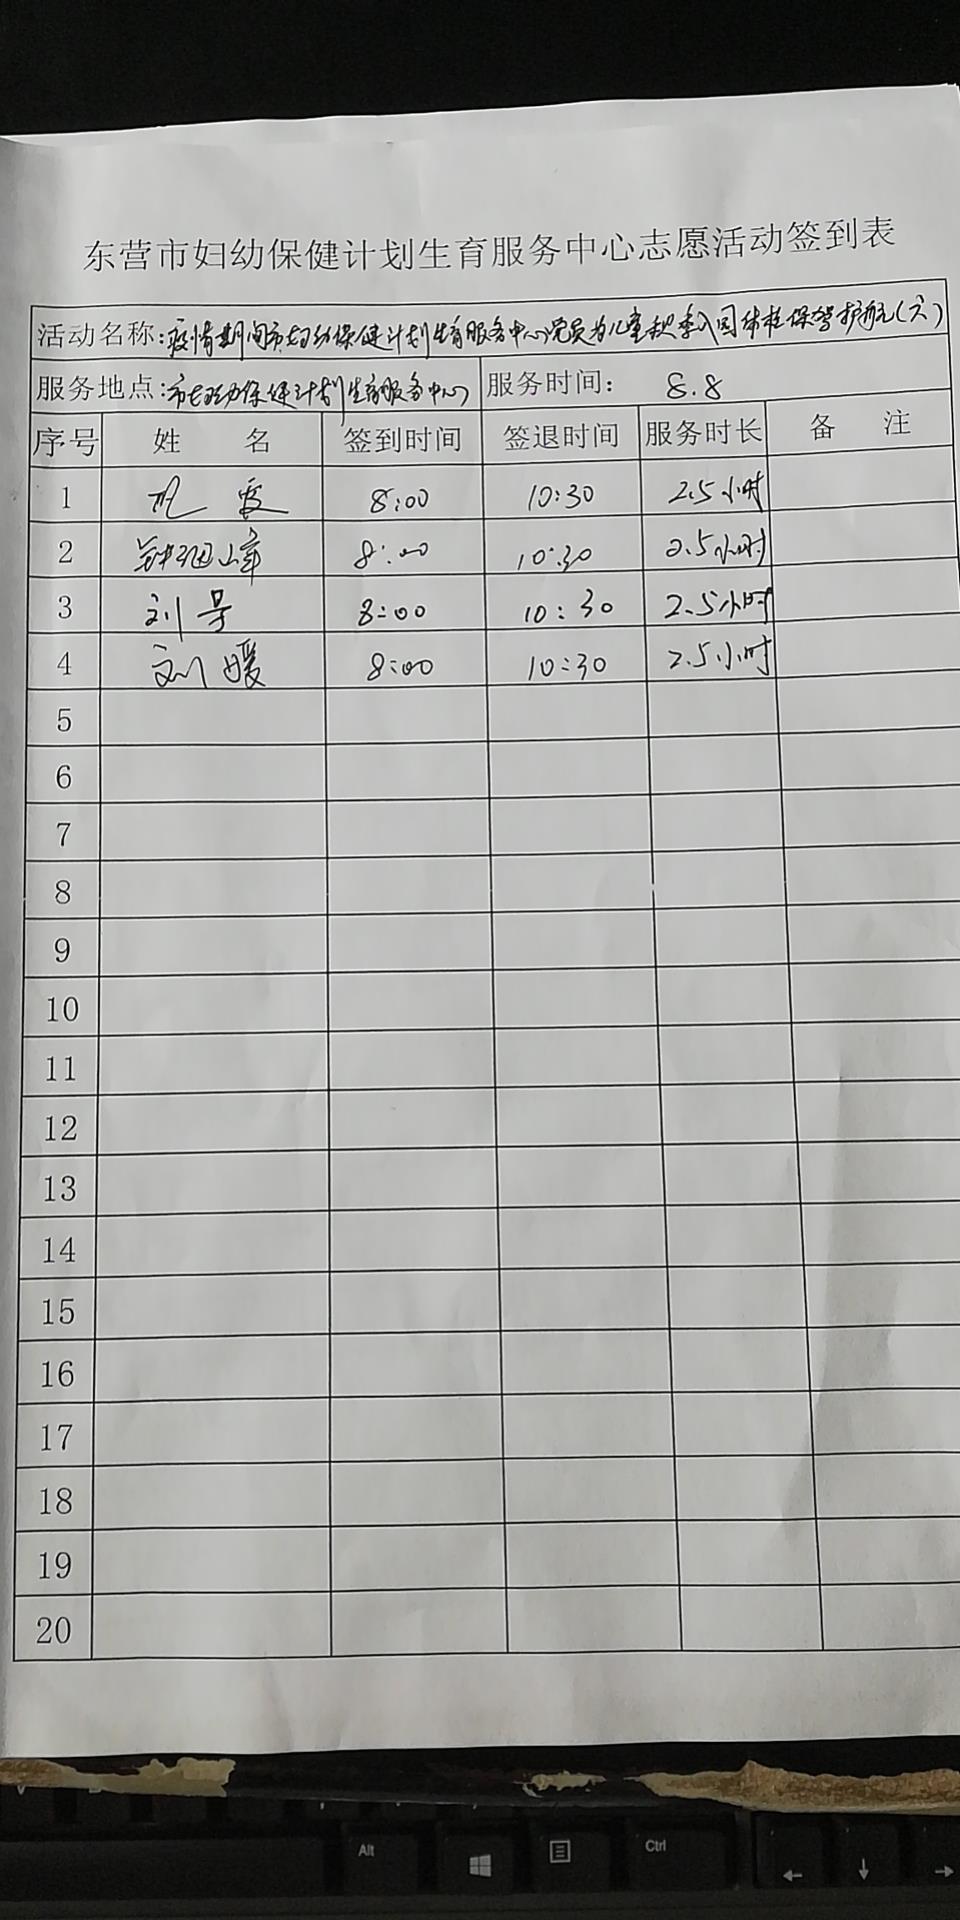 东营市妇幼保健计划生育服务中心志愿活动签到表
活动名称:疫情期间市妇幼保健计划生育服务中心党员为儿童秋季入园体检保驾护航(六)
服务地点:市妇幼保健计划生育服务中心 服务时间: 8.8
序号 姓 名 签到时间 签退时间 服务时长 备 注
1 8:00 10:30 2.5小时
2 8:00 10:30 2.5小时
3 刘 8:00 10:30 2.5小时
4 刘媛 8:00 10:30 2.5小时
5
6
7
8
9
10
11
12
13
14
15
16
17
18
19
20
Alt Ctrl